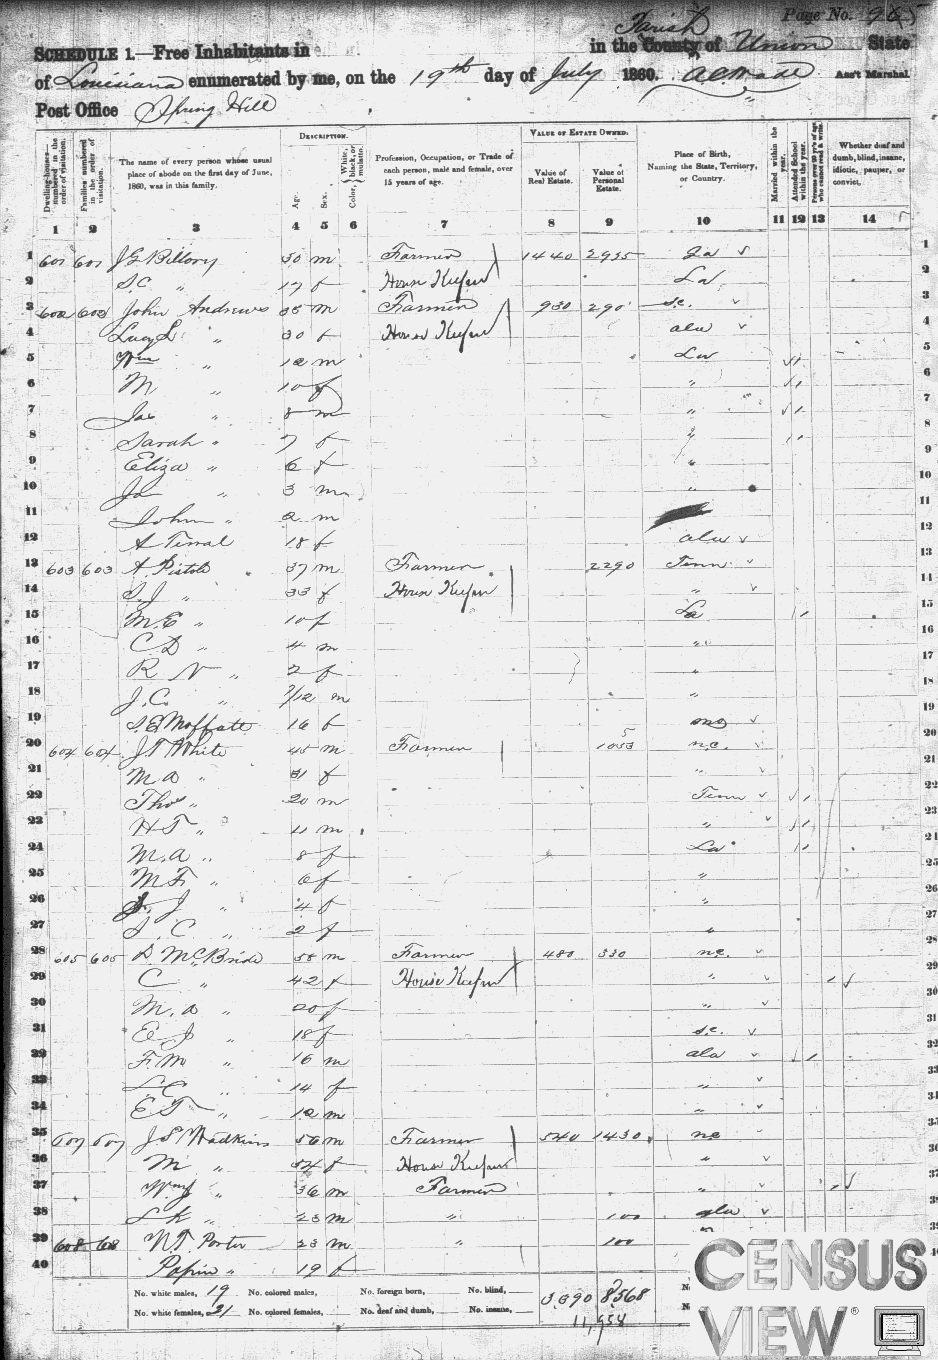 Page No. 965
SCHEDULE 1.—Free Inhabitants in in the Parish County of Union State
of Louisiana enumerated by me, on the 19th day of July 1860. A C Wade Ass't Marshal
Post Office Spring Hill
Dwelling-houses—numbered in the order of visitation.
Families numbered in the order of visitation.
The name of every person whose usual place of abode on the first day of June, 1860, was in this family.
DESCRIPTION.
Age.
Sex.
Color, White, black, or mulatto.
Profession, Occupation, or Trade of each person, male and female, over 15 years of age.
VALUE OF ESTATE OWNED.
Value of Real Estate.
Value of Personal Estate.
Place of Birth, Naming the State, Territory, or Country.
Married within the year.
Attended School within the year.
Persons over 20 y'rs of age who cannot read & write.
Whether deaf and dumb, blind, insane, idiotic, pauper, or convict.
1 2 3 4 5 6 7 8 9 10 11 12 13 14
1 601 601 30 m Farmer 1440 2935 1
2 S.C. " 17 f House Keeper La 2
3 602 602 John Andrews 35 m Farmer 930 290 S.C. 3
4 Lucy L " 30 f House Keeper ala 4
5 Wm " 12 m La 1 5
6 M " 10 f " 1 6
7 Jas " 8 m " 1 7
8 Sarah " 7 f " 1 8
9 Eliza " 6 f " 9
10 " 3 m " 10
11 John " 2 m 11
12 18 f ala 12
13 603 603 37 m Farmer 2290 Tenn 13
14 S.J " 33 f House Keeper " 14
15 M.E " 10 f La 1 15
16 C D " 4 m " 16
17 R N " 2 f " 17
18 J.C. " 7/12 m " 18
19 S.E Moffatt 16 f 19
20 604 604 J.T White 45 m Farmer 1053 n.c. 20
21 M a " 31 f " 21
22 Thos " 20 m Tenn 1 22
23 H T " 11 m " 1 23
24 M.a " 8 f La 1 24
25 M F. " 6 f " 25
26 J " 4 f " 26
27 S. C " 2 f " 27
28 605 605 D McBride 58 m Farmer 480 330 n.c. 28
29 C " 42 f House Keeper " 29
30 M. a " 20 f " 30
31 E J " 18 f S.C. 31
32 F.M " 16 m ala 1 32
33 S C " 14 f " 33
34 E T " 12 m " 34
35 607 607 56 m Farmer 540 1430 nc 35
36 M " 54 f House Keeper " 36
37 Wm J " 36 m Farmer " 37
38 S K " 23 m " 100 ala 38
39 608 608 N T. Porter 23 m " 100 " 39
40 " 19 f
No. white males, 19 No. colored males, No. foreign born, No. blind, 3.390 8,568
No. white females, 21 No. colored females, No. deaf and dumb, No. insane, 11,958
CENSUS
VIEW®